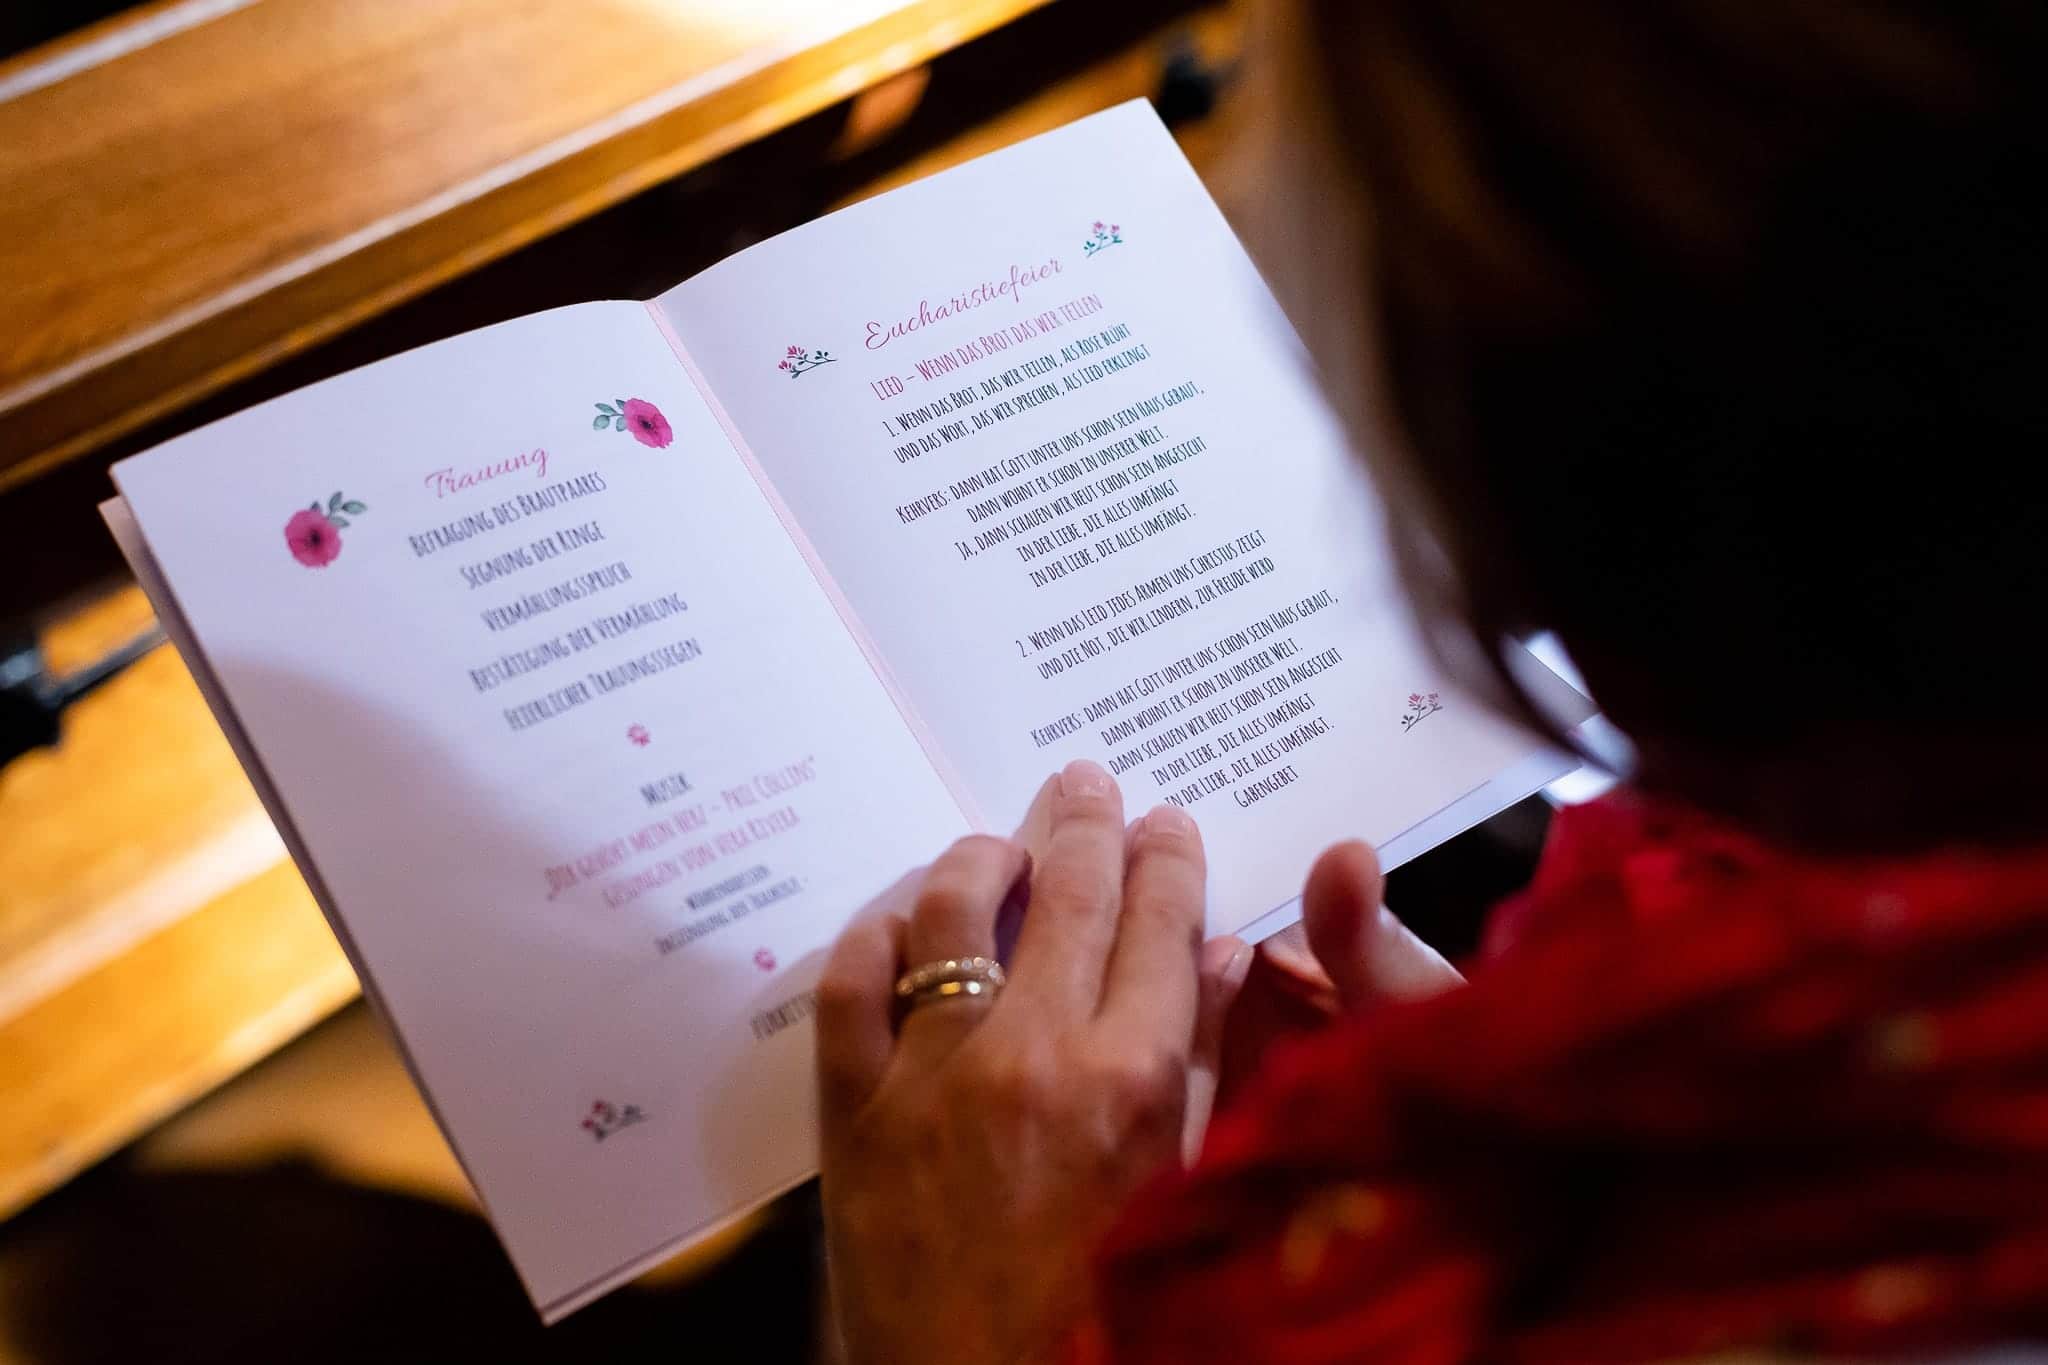 Trauung
Befragung des Brautpaares
Segnung der Ringe
Vermählungsspruch
Bestätigung der Vermählung
Feierlicher Trauungssegen
Musik
„Dir gehört mein Herz – Phil Collins“
Gesungen von Vera Rivera
- währenddessen
Entzündung der Trauerkerze -
Eucharistiefeier
Lied – Wenn das Brot das wir teilen
1. Wenn das Brot, das wir teilen, als Rose blüht
und das Wort, das wir sprechen, als Lied erklingt
Kehrvers: dann hat Gott unter uns schon sein Haus gebaut,
dann wohnt er schon in unserer Welt.
Ja, dann schauen wir heut schon sein Angesicht
in der Liebe, die alles umfängt
in der Liebe, die alles umfängt.
2. Wenn das Leid jedes Armen uns Christus zeigt
und die Not, die wir lindern, zur Freude wird
Kehrvers: dann hat Gott unter uns schon sein Haus gebaut,
dann wohnt er schon in unserer Welt.
dann schauen wir heut schon sein Angesicht
in der Liebe, die alles umfängt
in der Liebe, die alles umfängt.
Gabengebet